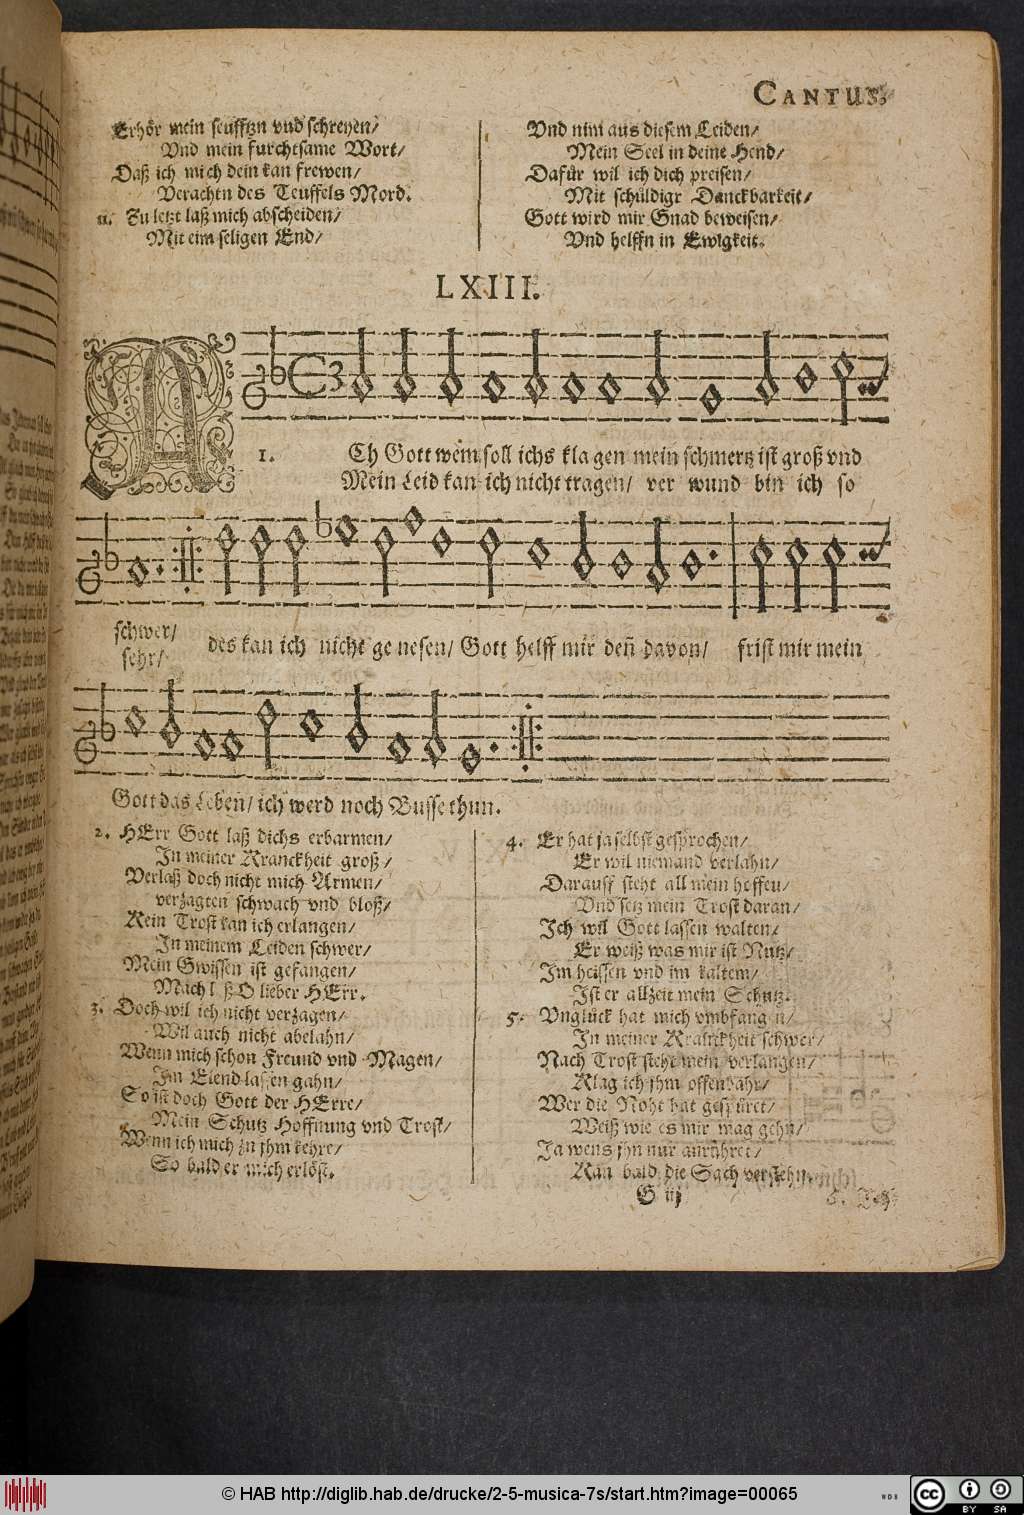 CANTUS.
Erhör mein seufftzn vnd schreyen/
Vnd mein furchtsame Wort/
Daß ich mich dein kan frewen/
Verachtn des Teuffels Mord.
11. Zu letzt laß mich abscheiden/
Mit eim seligen End/
Vnd nim aus diesem Leiden/
Mein Seel in deine Hend/
Dafür wil ich dich preisen/
Mit schüldigr Danckbarkeit/
Gott wird mir Gnad beweisen/
Vnd helffn in Ewigkeit.
LXIII.
1. ACh Gott wem soll ichs klagen mein schmertz ist groß vnd
Mein Leid kan ich nicht tragen/ ver wund bin ich so
schwer/
sehr/
des kan ich nicht ge nesen/ Gott helff mir deñ davon/ frist mir mein
Gott das Leben/ ich werd noch Busse thun.
2. HErr Gott laß dichs erbarmen/
In meiner Kranckheit groß/
Verlaß doch nicht mich Armen/
verzagten schwach vnd bloß/
Kein Trost kan ich erlangen/
In meinem Leiden schwer/
Mein Gwissen ist gefangen/
Mach l ß O lieber HErr.
3. Doch wil ich nicht verzagen/
Wil auch nicht abelahn/
Wenn mich schon Freund vnd Magen/
Im Elend lassen gahn/
So ist doch Gott der HErre/
Mein Schutz Hoffnung vnd Trost/
Wenn ich mich zu jhm kehre/
So bald er mich erlöst.
4. Er hat ja selbst gesprochen/
Er wil niemand verlahn/
Darauff steht all mein hoffen/
Vnd setz mein Trost daran/
Ich wil Gott lassen walten/
Er weiß was mir ist Nutz/
Im heissen vnd im kaltem/
Ist er allzeit mein Schutz.
5. Vnglück hat mich vmbfang n/
In meiner Kranckheit schwer/
Nach Trost steht mein verlangen/
Klag ich jhm offenbahr/
Wer die Noht hat gespüret/
Weiß wie es mir mag gehn/
Ja wens jhn nur anrühret/
Kan bald die Sach verstehn.
G iij
© HAB http://diglib.hab.de/drucke/2-5-musica-7s/start.htm?image=00065
WDB
cc
BY SA